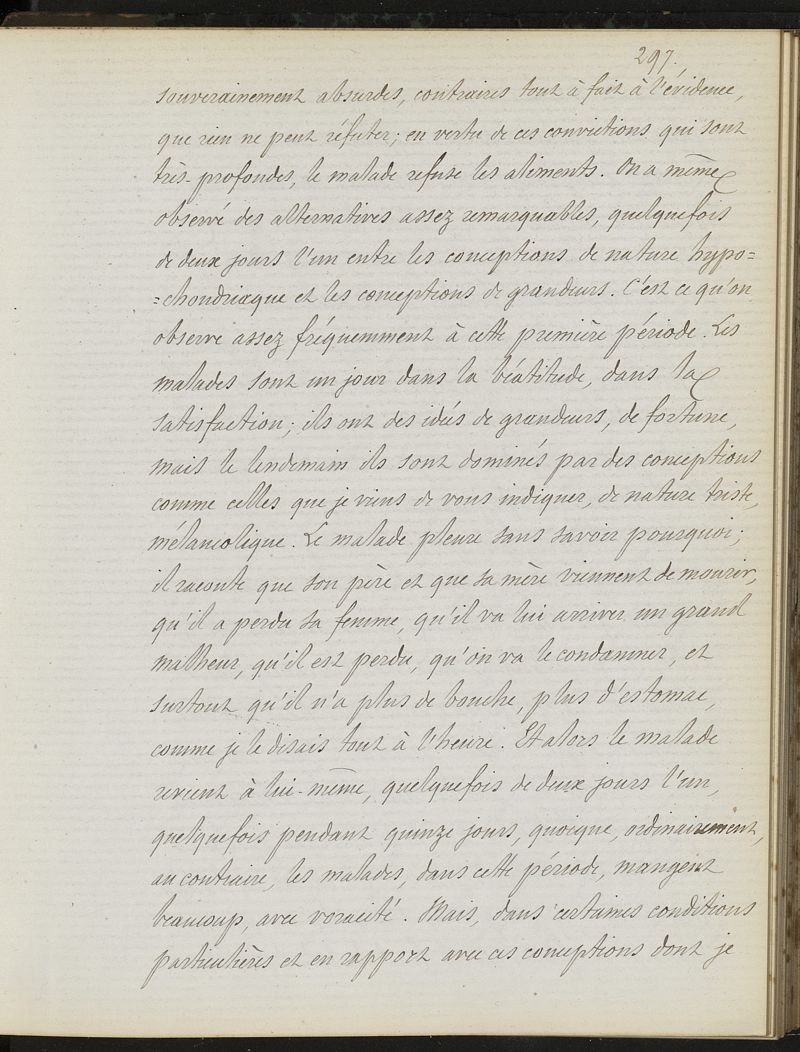 297.
souverainement absurdes, contraires tout à fait à l'évidence,
que rien ne peut réfuter; en vertu de ces convictions qui sont
très-profondes, le malade refuse les aliments. On a même
observé des alternatives assez remarquables, quelquefois
de deux jours l'un entre les conceptions de nature hypo=
=chondriaque et les conceptions de grandeurs. C'est ce qu'on
observe assez fréquemment à cette première période. Les
malades sont un jour dans la béatitude, dans la
satisfaction; ils ont des idées de grandeurs, de fortune,
mais le lendemain ils sont dominés par des conceptions
comme celles que je viens de vous indiquer, de nature triste,
mélancolique. Le malade pleure sans savoir pourquoi;
il raconte que son père et que sa mère viennent de mourir,
qu'il a perdu sa femme, qu'il va lui arriver un grand
malheur, qu'il est perdu, qu'on va le condamner, et
surtout qu'il n'a plus de bouche, plus d'estomac,
comme je le disais tout à l'heure. Et alors le malade
revient à lui-même, quelquefois de deux jours l'un,
quelquefois pendant quinze jours, quoique, ordinairement,
au contraire, les malades, dans cette période, mangent
beaucoup, avec voracité. Mais, dans certaines conditions
particulières et en rapport avec ces conceptions dont je